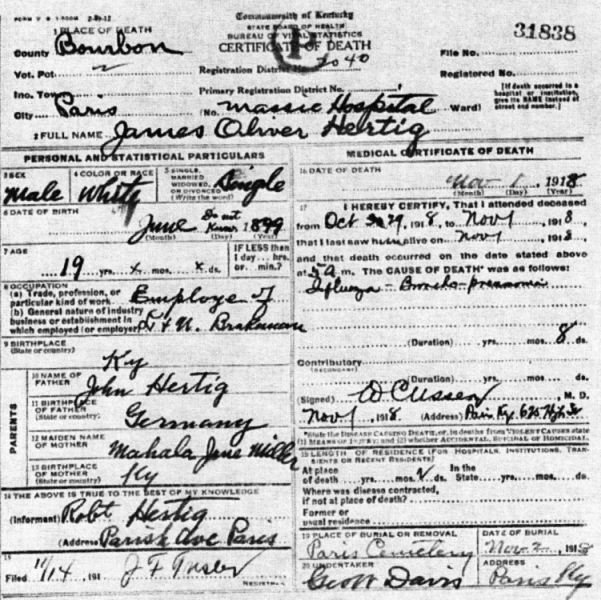 FORM V S 1-500M 2-21-12
Commonwealth of Kentucky
STATE BOARD OF HEALTH
BUREAU OF VITAL STATISTICS
CERTIFICATE OF DEATH
31838
1 PLACE OF DEATH
County Bourbon
Vot. Pct.
Inc. Tow
City Paris
Registration District No. 2040
Primary Registration District No.
No. Massie Hospital Ward)
File No.
Registered No.
[If death occurred in a hospital or institution, give its NAME instead of street and number.]
2 FULL NAME James Oliver Hertig
PERSONAL AND STATISTICAL PARTICULARS
3 SEX Male
4 COLOR OR RACE White
5 SINGLE, MARRIED, WIDOWED, OR DIVORCED (Write the word) Single
6 DATE OF BIRTH
June Do not Know 1899
(Month) (Day) (Year)
7 AGE
19 yrs. x mos. x ds.
IF LESS than 1 day... hrs. or min.?
8 OCCUPATION
(a) Trade, profession, or particular kind of work Employe of
(b) General nature of industry business or establishment in which employed (or employer) L & N. Brakeman
9 BIRTHPLACE
(State or country) Ky
PARENTS
10 NAME OF FATHER John Hertig
11 BIRTHPLACE OF FATHER (State or country) Germany
12 MAIDEN NAME OF MOTHER Mahala Jane Miller
13 BIRTHPLACE OF MOTHER (State or country) Ky
14 THE ABOVE IS TRUE TO THE BEST OF MY KNOWLEDGE
(Informant) Robt Hertig
(Address) Parrish Ave Paris
15
Filed 11/14 191
REGISTRAR
MEDICAL CERTIFICATE OF DEATH
16 DATE OF DEATH
Nov 1 1918
(Month) (Day) (Year)
17 I HEREBY CERTIFY, That I attended deceased
from Oct 29, 1918, to Nov 1 1918,
that I last saw him alive on Nov 1 1918,
and that death occurred on the date stated above
at 5 A m. The CAUSE OF DEATH* was as follows:
Influenza - Broncho-pneumonia
(Duration) yrs. mos. 8 ds.
Contributory
(SECONDARY)
(Duration) yrs. mos. ds.
(Signed) M. D.
Nov 1, 1918. (Address) Paris Ky.
*State the DISEASE CAUSING DEATH, or, in deaths from VIOLENT CAUSES state (1) MEANS OF INJURY; and (2) whether ACCIDENTAL, SUICIDAL OR HOMICIDAL.
18 LENGTH OF RESIDENCE (FOR HOSPITALS, INSTITUTIONS, TRANSIENTS OR RECENT RESIDENTS)
At place of death yrs. mos. ds. In the State yrs. mos. ds.
Where was disease contracted, if not at place of death?
Former or usual residence
19 PLACE OF BURIAL OR REMOVAL
Paris Cemetery
DATE OF BURIAL
Nov. 2 1918
20 UNDERTAKER
Geo W Davis
ADDRESS
Paris Ky